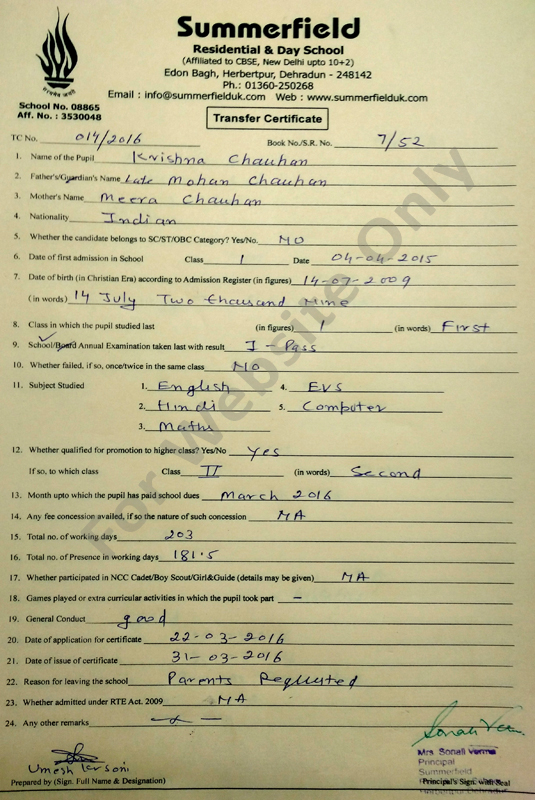 Summerfield
Residential & Day School
(Affiliated to CBSE, New Delhi upto 10+2)
Edon Bagh, Herbertpur, Dehradun - 248142
Ph.: 01360-250268
Email : info@summerfielduk.com Web : www.summerfielduk.com
School No. 08865
Aff. No. : 3530048
Transfer Certificate
TC No. 014/2016 Book No./S.R. No. 7/52
1. Name of the Pupil Krishna Chauhan
2. Father's/Guardian's Name Late Mohan Chauhan
3. Mother's Name Meera Chauhan
4. Nationality Indian
5. Whether the candidate belongs to SC/ST/OBC Category? Yes/No. NO
6. Date of first admission in School Class 1 Date 04-04-2015
7. Date of birth (in Christian Era) according to Admission Register (in figures) 14-07-2009
(in words) 14 July Two thausand Nine
8. Class in which the pupil studied last (in figures) 1 (in words) First
9. School/Board Annual Examination taken last with result I - Pass
10. Whether failed, if so, once/twice in the same class NO
11. Subject Studied 1. English 4. EVS
2. Hindi 5. Computer
3. Maths
12. Whether qualified for promotion to higher class? Yes/No Yes
If so, to which class Class II (in words) Second
13. Month upto which the pupil has paid school dues March 2016
14. Any fee concession availed, if so the nature of such concession NA
15. Total no. of working days 203
16. Total no. of Presence in working days 181.5
17. Whether participated in NCC Cadet/Boy Scout/Girl&Guide (details may be given) NA
18. Games played or extra curricular activities in which the pupil took part –
19. General Conduct good
20. Date of application for certificate 22-03-2016
21. Date of issue of certificate 31-03-2016
22. Reason for leaving the school Parents Requested
23. Whether admitted under RTE Act. 2009 NA
24. Any other remarks
Sonali
Mrs. Sonali Verma
Principal
Summerfield
Umesh
Prepared by (Sign. Full Name & Designation) Principal's Sign. with Seal
Herbertpur Dehradun
For Website Only